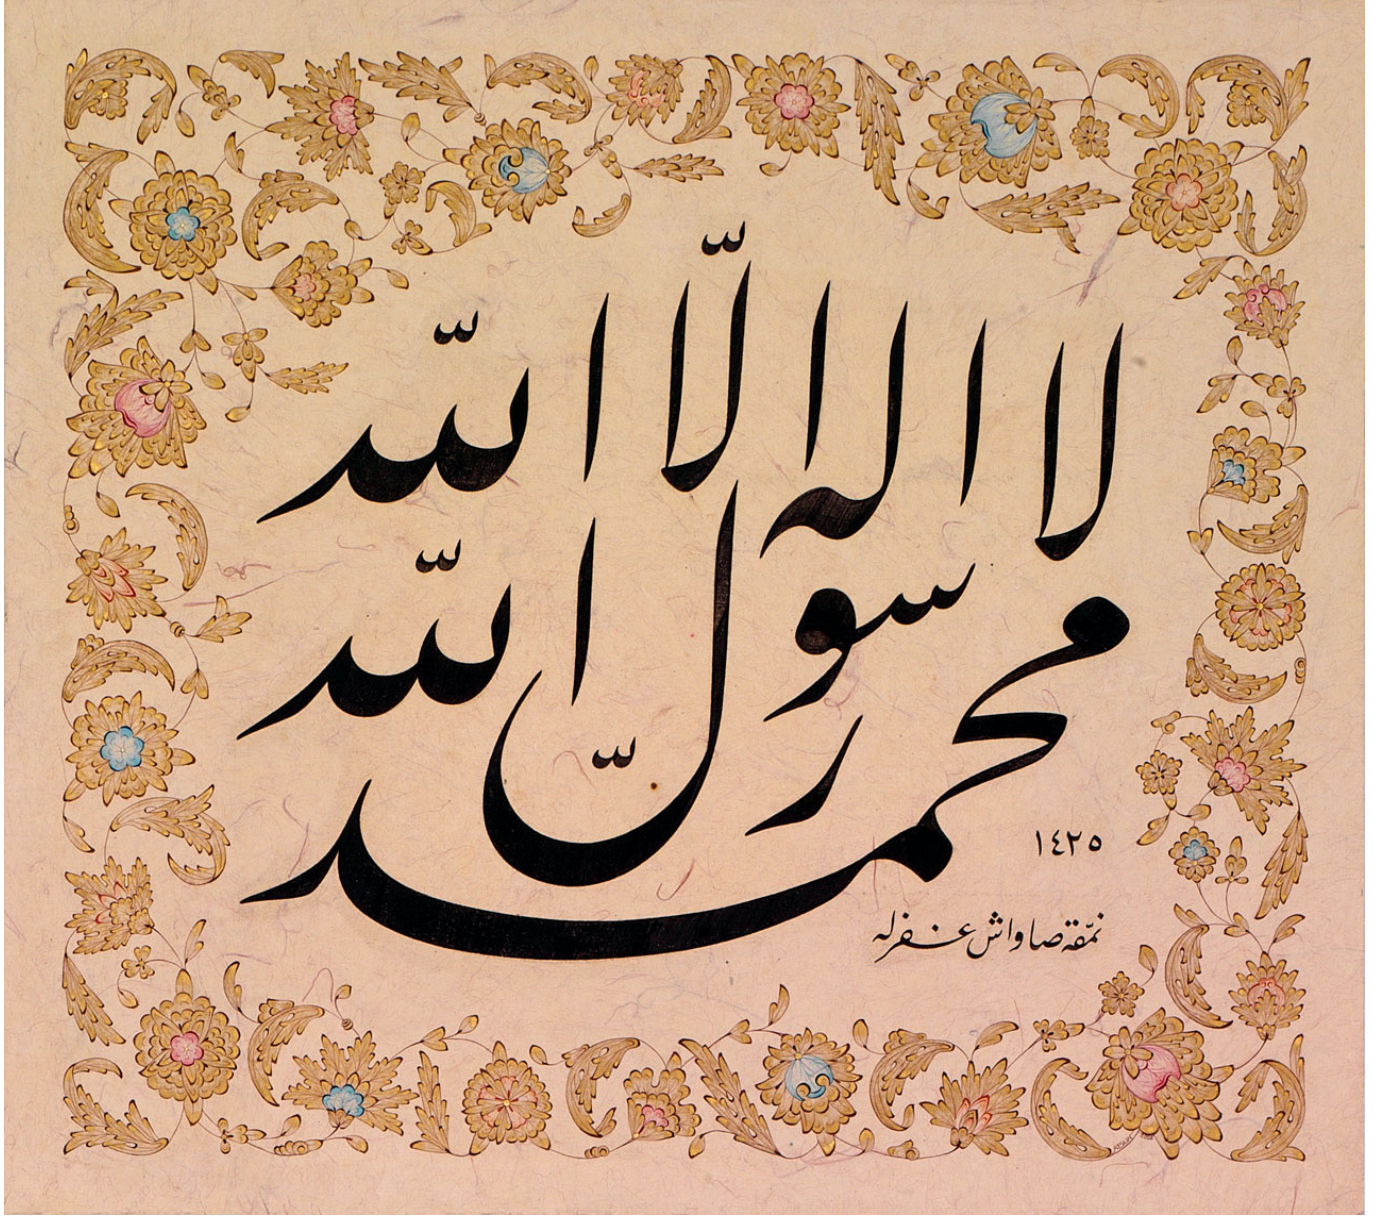 لا اله الّا اللّه
محمد رسول اللّه
١٤٢٥
نمّقه صاواش غفرله